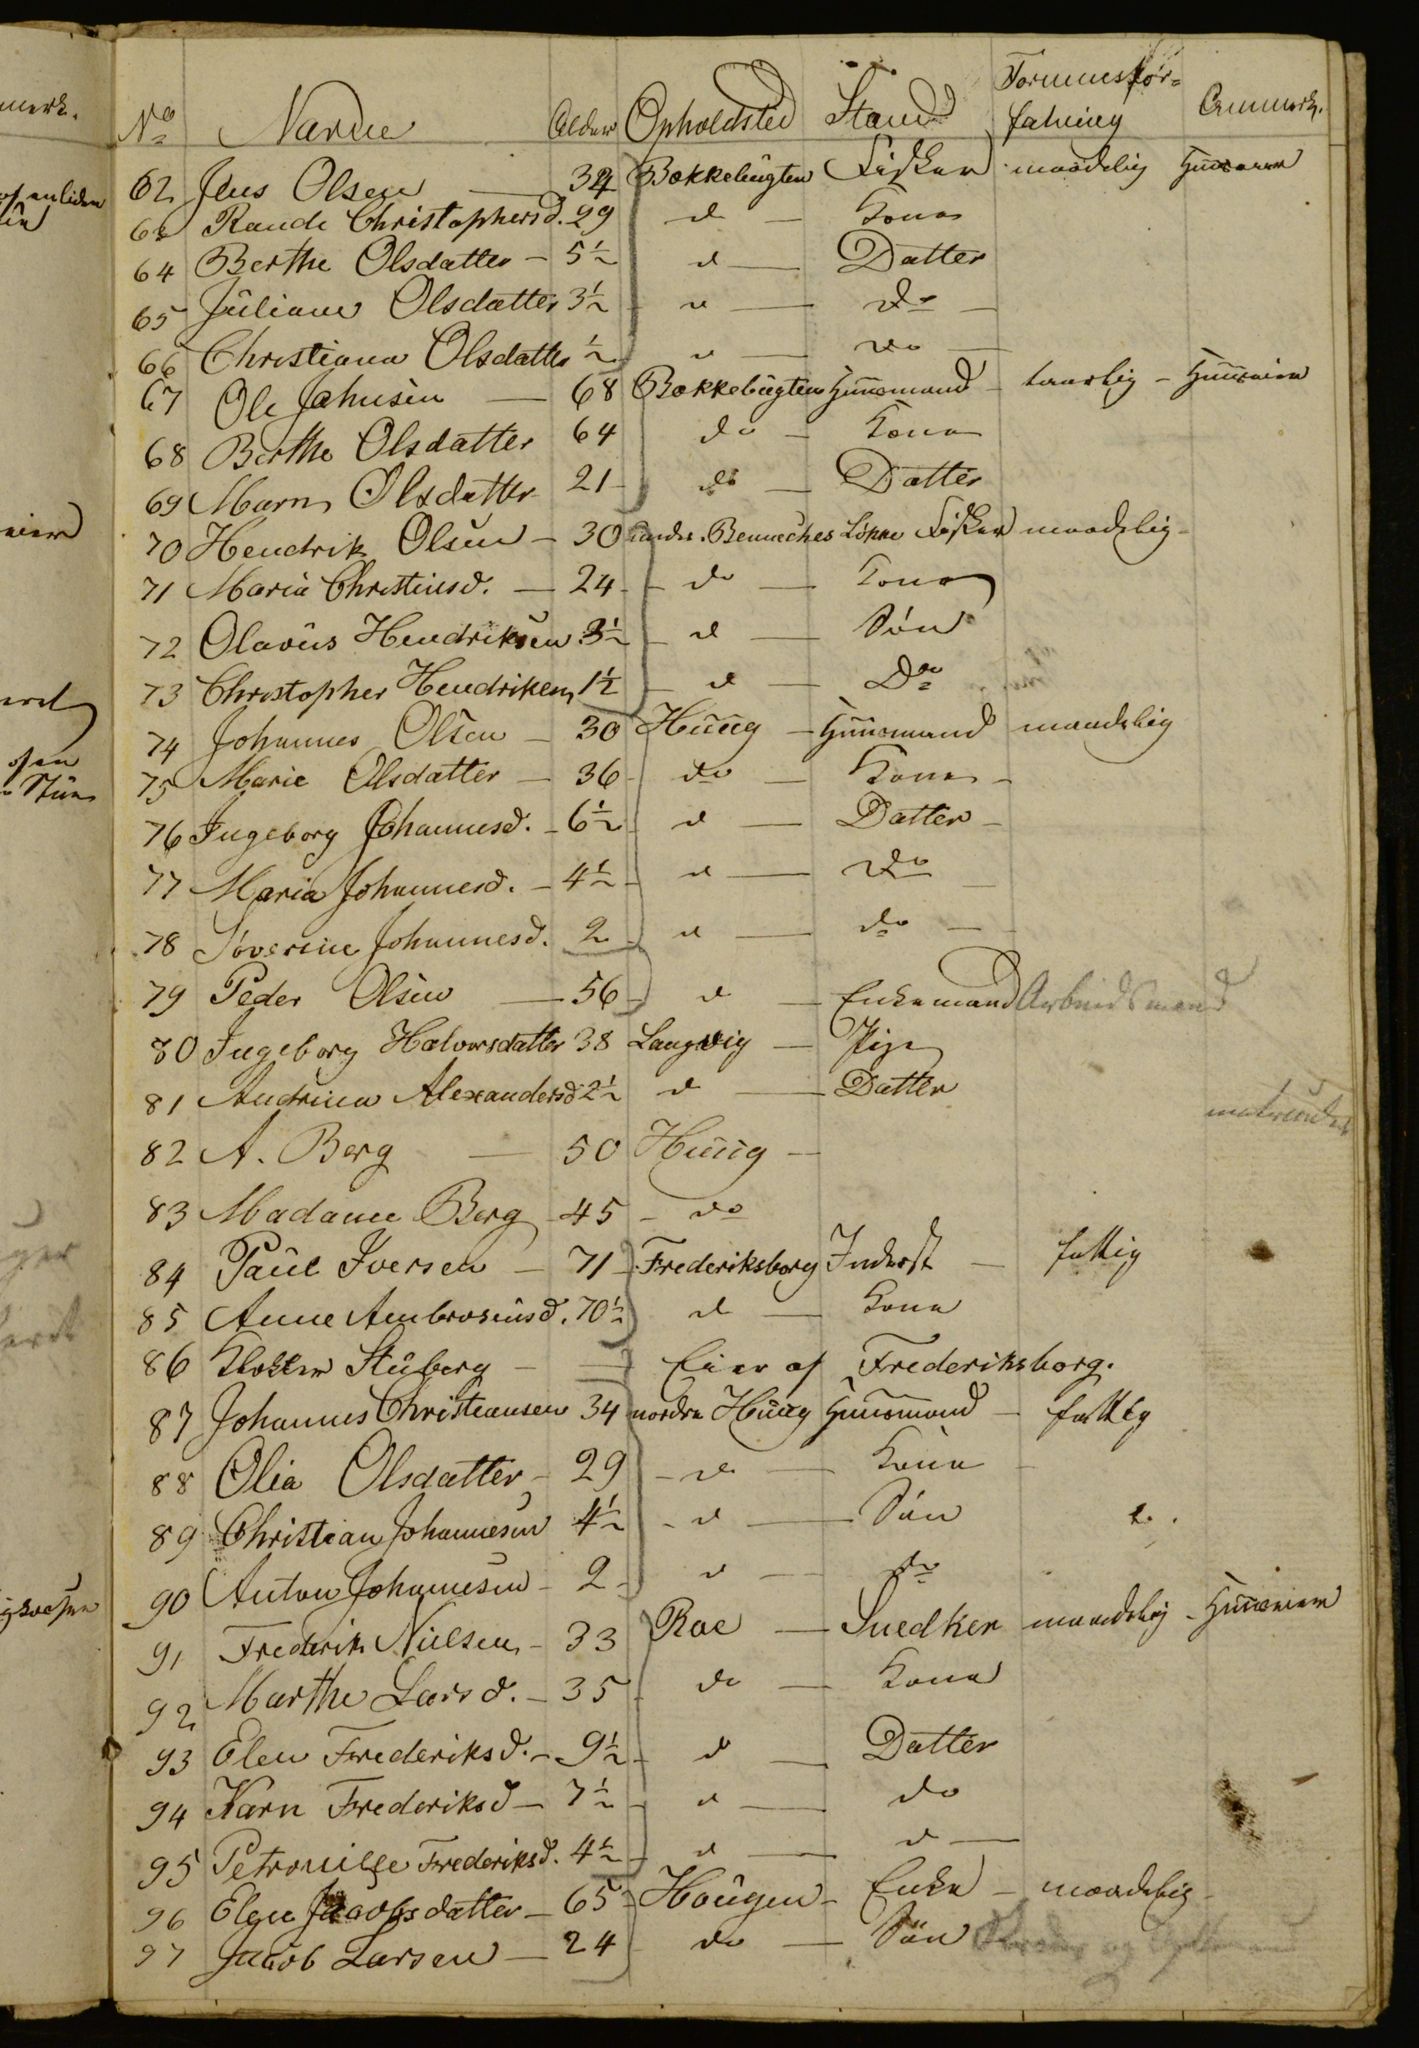 No Navne Alder Opholdsted Stand Formuesforfatning Anmerk.
62 Jens Olsen — 34 Bokkebugten Fisker maadelig Huuseier
63 Rande Christophersd. 29 d — Kone
64 Berthe Olsdatter — 5½ d — Datter
65 Juliane Olsdatter 3½ d — do —
66 Christiana Olsdatter ½ d — do —
67 Ole Johnsen — 68 Bokkebugten Huusmand — taarlig — Huuseier
68 Berthe Olsdatter 64 do — Kone
69 Marn Olsdatter 21 — do — Datter
70 Hendrik Olsen — 30 under Benneches Løkke Fisker maadelig —
71 Maria Christiansd. — 24 — do — Kone
72 Olavus Hendriksen 3½ — d — Søn
73 Christopher Hendriksen 1½ — d — Do
74 Johannes Olsen — 30 Huug — Huusmand maadelig
75 Marie Olsdatter — 36 — do — Kone —
76 Ingeborg Johannesd. — 6½ — d — Datter —
77 Maria Johannesd. — 4½ — d — do —
78 Søverine Johannesd. 2 — d — do —
79 Peder Olsen — 56 — d — Enkemand Arbeidsmand
80 Ingeborg Halvorsdatter 38 Langvig — Pige
81 Andrina Alexandersd 2½ d — Datter
82 A. Berg — 50 Huug —
83 Madame Berg — 45 — do
84 Paul Iversen — 71 — Frederiksborg Inderst — fattig
85 Anne Ambrosiusd. 70½ d — Kone
86 Stuberg — — Eier af Frederiksborg.
87 Johannes Christiansen 34 nordre Huug Huusmand — fattig
88 Olia Olsdatter — 29 — d — Kone —
89 Christian Johannesen 4½ — d — Søn
90 Anton Johannesen — 2 — d — do
91 Frederik Nielsen — 33 Roe — Snedker maadelig — Huuseier
92 Marthe Larsd. — 35 — do — Kone
93 Elen Frederiksd. — 9½ — d — Datter
94 Karn Frederiksd — 7½ — d — do
95 Petronille Frederiksd. 4½ — d — d —
96 Elen Jacobsdatter — 65 — Hougen — Enke — maadelig —
97 Jacob Larsen — 24 do — Søn